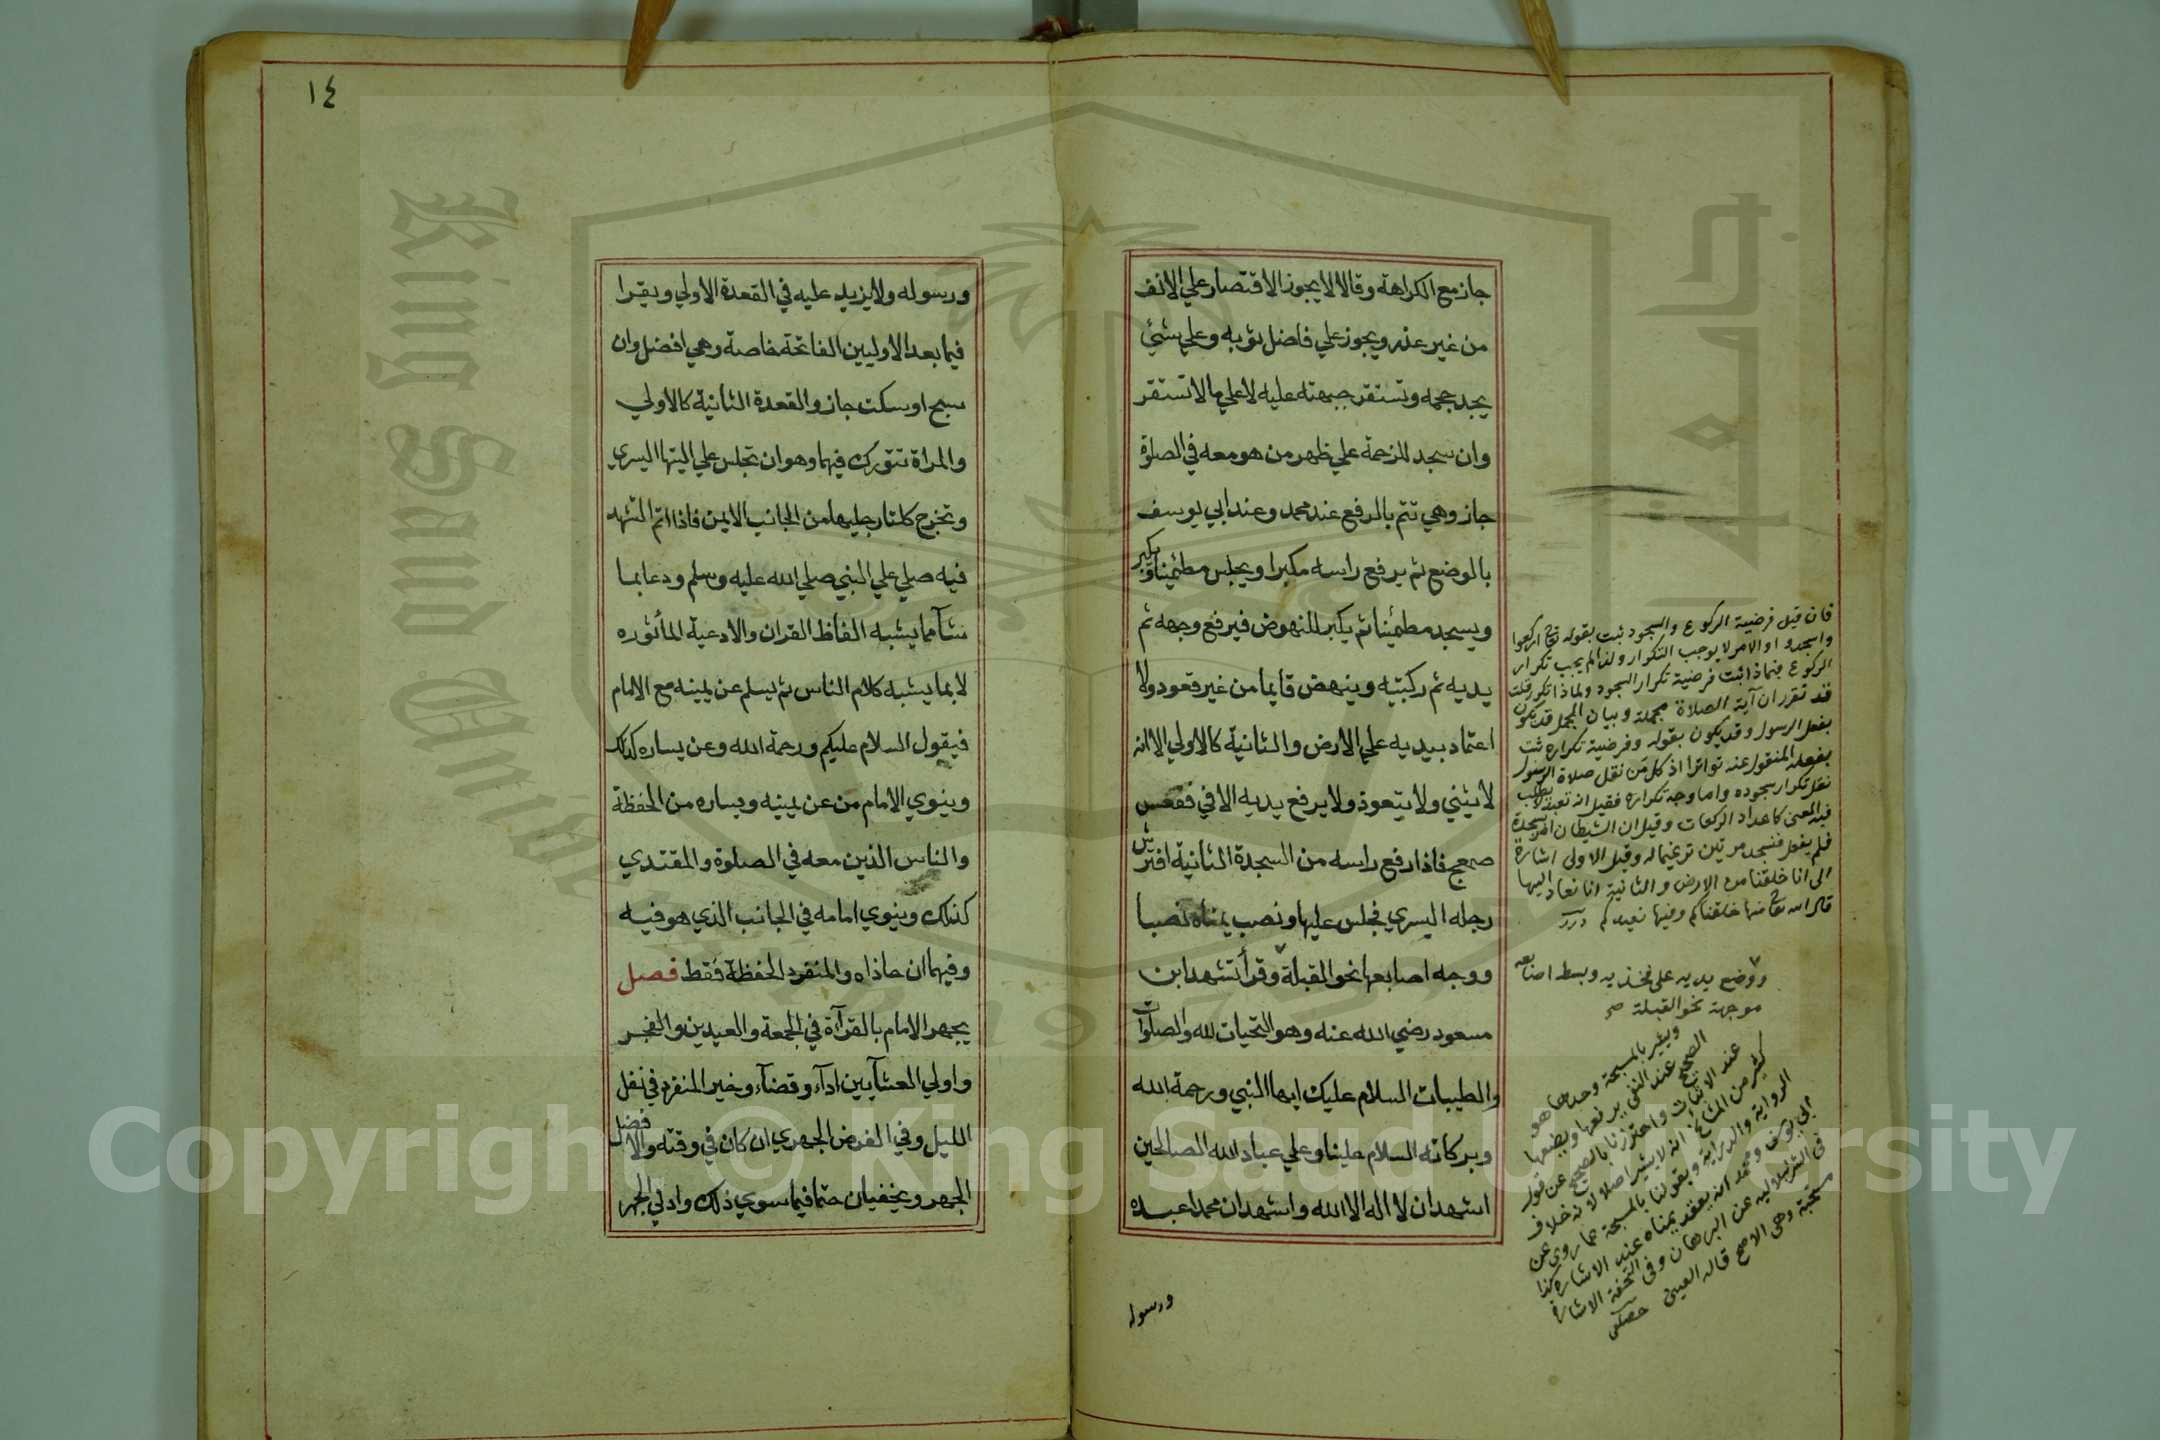 جاز مع الكراهة وقالا لا يجوز الاقتصار علي الانف
من غير عذر ويجوز علي فاضل ثوبه وعلي شئي
يجد حجمه وتستقر جبهته عليه لا علي ما لا تستقر
وان سجد للزحمة علي ظهر من هو معه في الصلوة
جاز وهي تتم بالرفع عند محمد وعند ابي يوسف
بالوضع ثم يرفع راسه مكبرا ويجلس مطمئينا ويكبر
ويسجد مطمئينا ثم يكبر للنهوض فيرفع وجهه ثم
يديه ثم ركبتيه وينهض قايما من غير قعود ولا
اعتماد بيديه علي الارض والثانية كالاولي الا انه
لا يثني ولا يتعوذ ولا يرفع يديه الا في فقعس
صمعج فاذا رفع راسه من السجدة الثانية افترش
رجله اليسري فجلس عليها ونصب يمناه نصبا
ووجه اصابعها نحو القبلة وقرأ تشهد ابن
مسعود رضي الله عنه وهو التحيات لله والصلوات
والطيبات السلام عليك ايها النبي ورحمة الله
وبركاته السلام علينا وعلي عباد الله الصالحين
اشهد ان لا اله الا الله واشهد ان محمدا عبده
ورسوله
فان قيل فرضية الركوع والسجود ثبت بقوله تع اركعوا
واسجدوا والامر لا يوجب التكرار ولذا لم يجب تكرار
الركوع فبماذا ثبت فرضية تكرار السجود ولماذا تكرر قلت
قد تقرر ان آية الصلاة مجملة وبيان المجمل قد يكون
بفعل الرسول وقد يكون بقوله وفرضية تكراره ثبت
بفعله المنقول عنه تواترا اذ كل من نقل صلاة الرسول
نقل تكرار سجوده واما وجه تكراره فقيل انه تعبد لا يطلب
فيه المعنى كاعداد الركعات وقيل ان الشيطان امر بسجدة
فلم يفعل فنسجد مرتين ترغيما له وقيل الاولى اشارة
الى انا خلقنا من الارض والثانية انا نعاد اليها
قال الله تع منها خلقناكم وفيها نعيدكم درر
ووضع يديه على فخذيه وبسط اصابعه
موجهة نحو القبلة صح
ويشير بالمسبحة وحدها هو
الصحيح عند النفي يرفعها ويضعها
عند الاثبات واحترزنا بالصحيح عن قول
كثير من المشايخ انه لا يشير اصلا لانه خلاف
الرواية والدراية وبقولنا بالمسبحة عما روى عن
ابي يوسف ومحمد انه يعقد يمناه عند الاشارة كذا
في الشرنبلاليه عن البرهان وفى التحفة الاشارة
مستحبة وهى الاصح قاله العينى حصكفى
١٤
ورسوله ولا يزيد عليه في القعدة الاولي ويقرا
فيما بعد الاوليين الفاتحة خاصة وهي افضل وان
سبح او سكت جاز والقعدة الثانية كالاولي
والمراة تتورك فيهما وهو ان تجلس علي اليتها اليسري
وتخرج كلتا رجليها من الجانب الايمن فاذا اتم التشهد
فيه صلي علي النبي صلي الله عليه وسلم ودعا بما
شآ مما يشبه الفاظ القران والادعية المأثوره
لا بما يشبه كلام الناس ثم يسلم عن يمينه مع الامام
فيقول السلام عليكم ورحمة الله وعن يساره كذلك
وينوي الامام من عن يمينه ويساره من الحفظة
والناس الذين معه في الصلوة والمقتدي
كذلك وينوي امامه في الجانب الذي هو فيه
وفيهما ان حاذاه والمنفرد الحفظة فقط فصل
يجهر الامام بالقرآة في الجمعة والعيدين والفجر
واولي العشآيين ادآء وقضآء وخير المنفرد في نفل
الليل وفي الفرض الجهري ان كان في وقته والا فضل
الجهر ويخفيان حتما فيما سوي ذلك وادني الجهر
King Saud University
جامعة
1957
Copyright © King Saud University